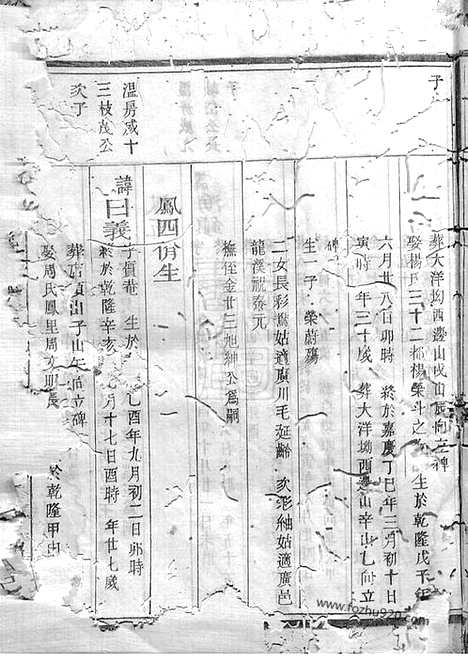 子
葬大洋坳西邊山戌山辰向立碑
娶楊 三十二都楊榮斗之 生於乾隆戊子年
六月廿八日卯時 終於嘉慶丁巳年三月初十日
寅時 年三十歲 葬大洋坳西邊山辛山乙向立
碑
生一子 榮蔚殤
二女長彩 姑適廣川毛延齡 次彩紬姑適廣邑
龍溪祝泰元
撫侄金廿三旭紳公爲嗣
鳳四 生
溫房咸十
三枝茂公
次子
諱曰義
字質菴 生於 乙酉年九月初二日卯時
終於乾隆辛亥 月十七日酉時 年廿七歲
葬 子山午向立碑
娶周氏鳳里周文明長
於乾隆甲申
www.fozhu920.com